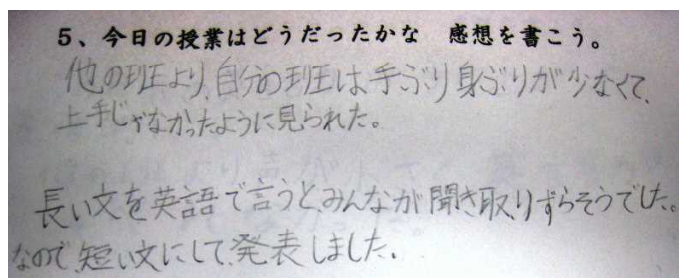 5、今日の授業はどうだったかな　感想を書こう。
他の班より、自分の班は手ぶり身ぶりが少なくて、
上手じゃなかったように見られた。
長い文を英語で言うと、みんなが聞き取りずらそうでした。
なので短い文にして、発表しました。